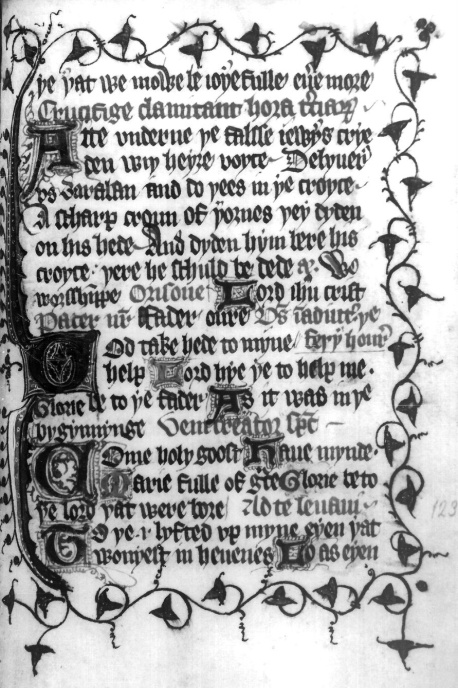 ye yat we mowe be ioyefulle eue more
Crucifige clamitant hora
Atte vnderne ye falsse iewys crye
den wiy heyre voyce Delyuer
vs baraban and do yees in ye croyce
A scharp croun of yornes yey dyden
on his hede And dyden hym bere his
croyce yere he schuld be dede We
worsshippe Orisoun Lord ihu crist
Pater nr Fader oure
God take hede to myne fery hour
help Lord hye ye to help me
Glorie be to ye fader As it was in ye
bygynnynge Veni creator
Come holy goost Haue mynde
Marie fulle of gce Glorie be to
ye lord yat were bore Ad te leuaui
To ye i lyfted vp myne eyen yat
wonyest in heuenes Lo as eyen
123